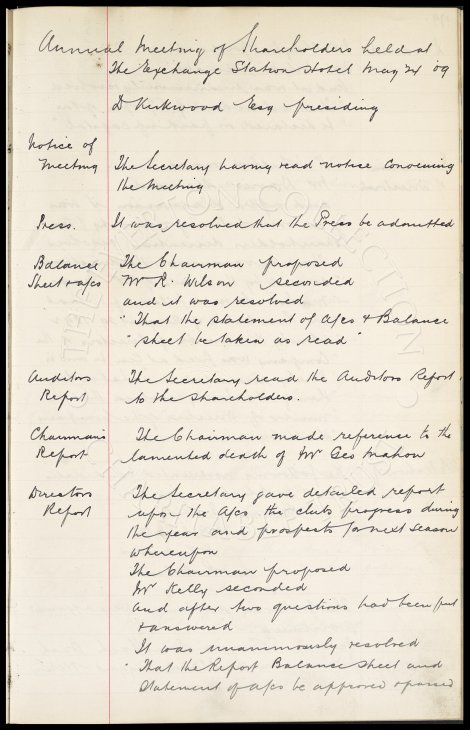 Annual Meeting of Shareholders held at
The Exchange Station Hotel May 24 '09
D Kirkwood Esq presiding
Notice of
Meeting
The Secretary having read notice convening
the Meeting
Press.
It was resolved that the Press be admitted
Balance
Sheet & a/cs
The Chairman proposed
Mr R. Wilson seconded
and it was resolved
" That the statement of A/cs & Balance
" sheet be taken as read "
Auditors
Report
The Secretary read the Auditors Report
to the shareholders.
Chairman's
Report
The Chairman made reference to the
lamented death of Mr Geo Mahon
Directors
Report
The Secretary gave detailed report
upon the A/cs the clubs progress during
the year and prospects for next season
whereupon
The Chairman proposed
Mr Kelly seconded
and after two questions had been put
& answered
It was unanimously resolved
" That the Report Balance Sheet and
Statement of A/cs be approved & passed